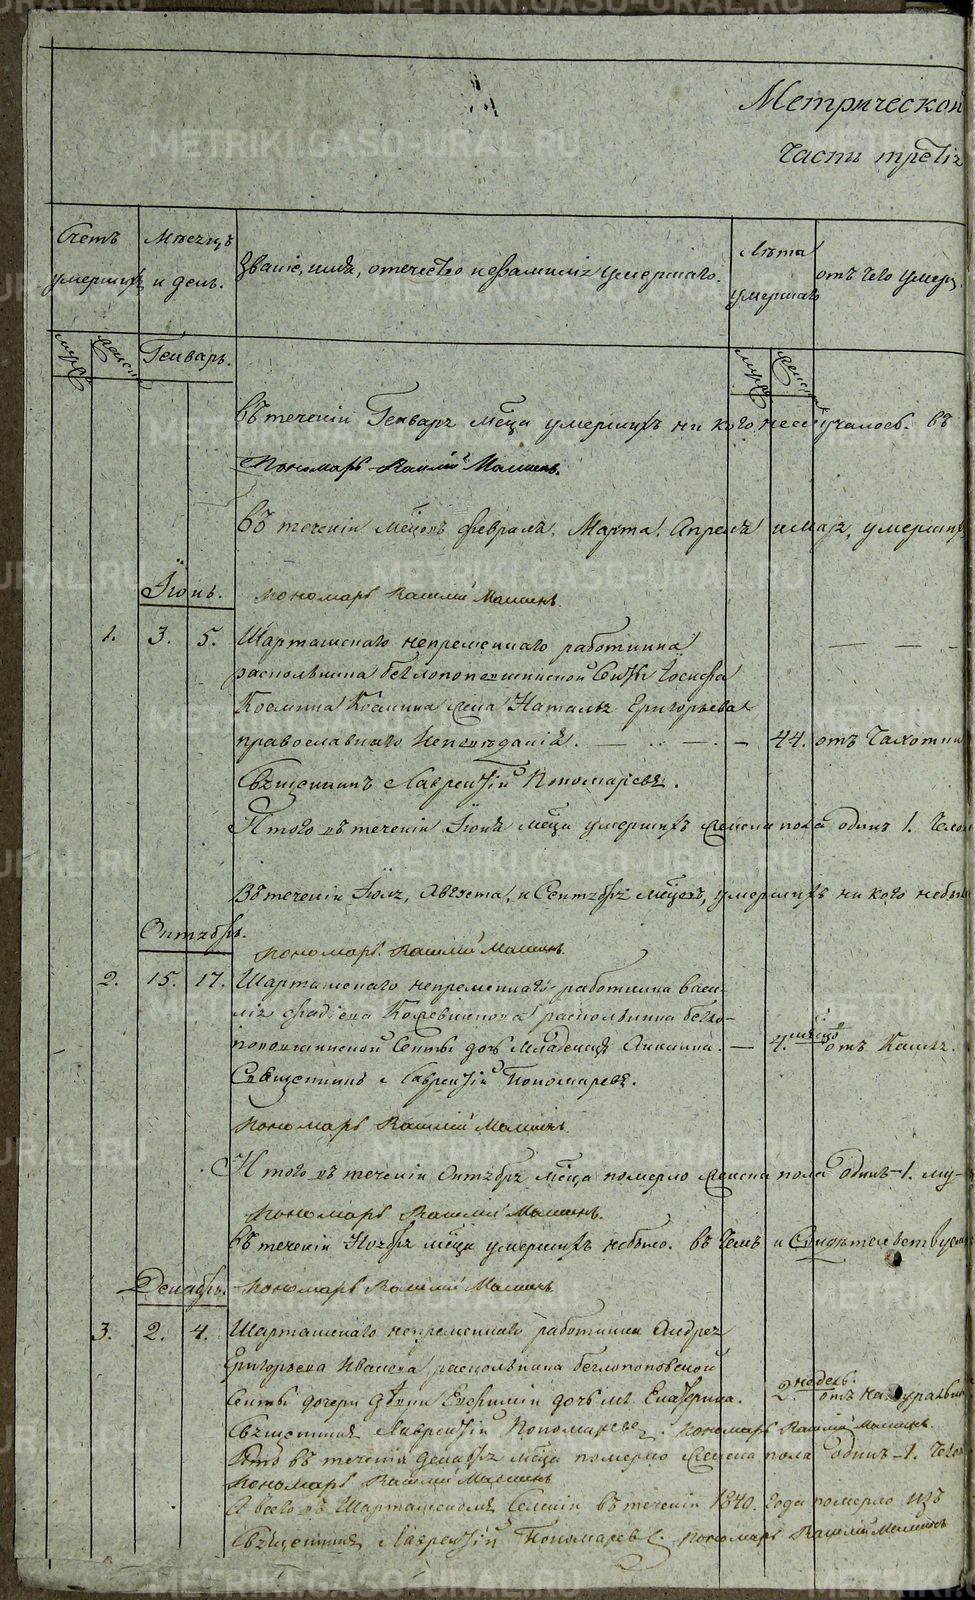 Метрической
Часть третія
Счетъ
умершихъ
Мѣсяцъ
и день.
Званіе, имя, отечество и фамилія умершаго.
Лѣта
умершаго
отъ чего умеръ.
муж
женск
Генварь.
муж
женск
Въ теченіи Генваря мѣсца умершихъ ни кого неслучалось. въ
Пономарь Василій Малининъ.
Въ теченіи мѣсцовъ Февраля, Марта, Апреля и Мая, умершихъ
Іюнь.
Пономарь Василій Малининъ.
1. 3. 5. Шарташскаго непремѣннаго работника
раскольника беглопоповшинской Секты Іосифа
Космина Космина жена Наталья Григорьева
православнаго Исповѣданія. — 44. отъ Чахотки
Священникъ Лаврентій Пономаревъ.
Итого въ теченіи Іюня мѣсца умершихъ женска пола одинъ 1. Челов
Въ теченіи Іюля, Августа, и Сентября мѣсцовъ, умершихъ ни кого небы
Октябрь.
Пономарь Василій Малининъ.
2. 15. 17. Шарташскаго непремѣннаго работника Васи-
лія Фадѣева Кожевникова раскольника бегло-
поповшинской Секты дочь Младеница — 4. мѣсцо отъ Кашля.
Священникъ Лаврентій Пономаревъ.
Пономарь Василій Малининъ.
Итого въ теченіи Октября мѣсца померло женска пола одинъ — 1. му-
Пономарь Василій Малининъ.
Въ теченіи Ноября мѣсца умершихъ небыло. въ Чемъ и Свидѣтельствуе
Декабрь.
Пономарь Василій Малининъ
3. 2. 4. Шарташскаго непремѣннаго работника Андрея
Григорьева Иванова раскольника беглопоповской
Секты дочери дѣвки Евфиміи дочь Екатерина. 2. недель.
Священникъ Лаврентій Пономаревъ. Пономарь Василій Малининъ.
въ теченіи Декабря мѣсца померло женска пола одинъ — 1. Чело
Пономарь Василій Малининъ
А всего въ Шарташскомъ Селеніи въ теченіи 1840. года померло
Священникъ Лаврентій Пономаревъ. Пономарь Василій Малининъ
METRIKI.GASO-URAL.RU